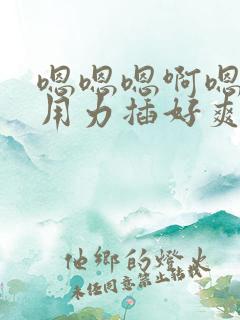 嗯嗯嗯啊嗯
用力插好爽
他鄉的燈火
未经同意禁止转载